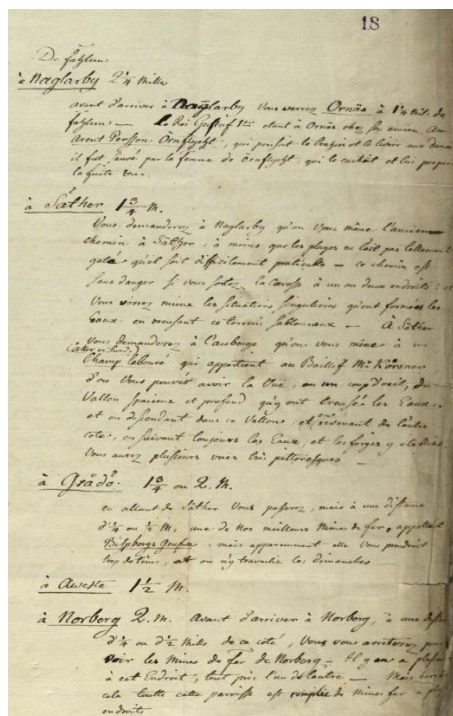 18
De fahlun
à Naglarby 2 1/4 Mille
avant d'arriver à Naglarby vous verrez Ornäs à 1 1/4 Mil. de
fahlun. — Le Roi Gustaf 1er étant à Ornäs chez son ancien Ami
Arent Persson Örnflycht, qui pensait le trahir et le livrer aux Danois
il fut sauvé par la femme de Örnflycht, qui le cachât et lui
la fuite
à Säther 1 3/4 M.
Vous demanderez à Naglarby qu'on Vous mène l'ancien
chemin à Säther, à moins que les pluyes ne l'ait pas tellement
gaté qu'il soit difficilement praticable — ce chemin est
sans danger si vous sortez la Carosse à un ou deux endroits: et
Vous verrez mieux les situations singulières qu'ont formées les
Eaux en creusant ce terrein sablonneux — À Säther
Vous demanderez à l'auberge qu'on vous mène à un
Champ labouré qui appartient au Baillif Mr. Körsner
d'ou Vous pouvez avoir la Vue, en un coup d'oeil, du
Vallon spacieux et profond qu'y ont creusée les Eaux
et en descendant dans ce Vallons, et revenant de l'autre
coté, en suivant toujours les Eaux et les forges y etablies
Vous aurez plusieurs vues très pittoresques —
à Grådö. 1 3/4 ou 2. M.
en allant de Säther Vous passerez, mais à une distance
d'1/4 ou 1/2 M. une de nos meilleurs Mines de fer, appellée
Bitsbergs Grufva, mais apparemment elle Vous prendroit
trop de tems, et on n'y travaille les dimanches
à Awesta 1 1/2 M.
à Norberg 2. M. Avant d'arriver à Norberg, à une distance
d'1/4 ou d'1/2 Mille de ce coté, Vous vous arrêterez pour
voir les Mines de Fer de Norberg — Il y en a plusieurs
à cet Endroit, tout près l'un de l'autre — Mais
cela toutte cette paroisse est remplie de mines fer à
endroits